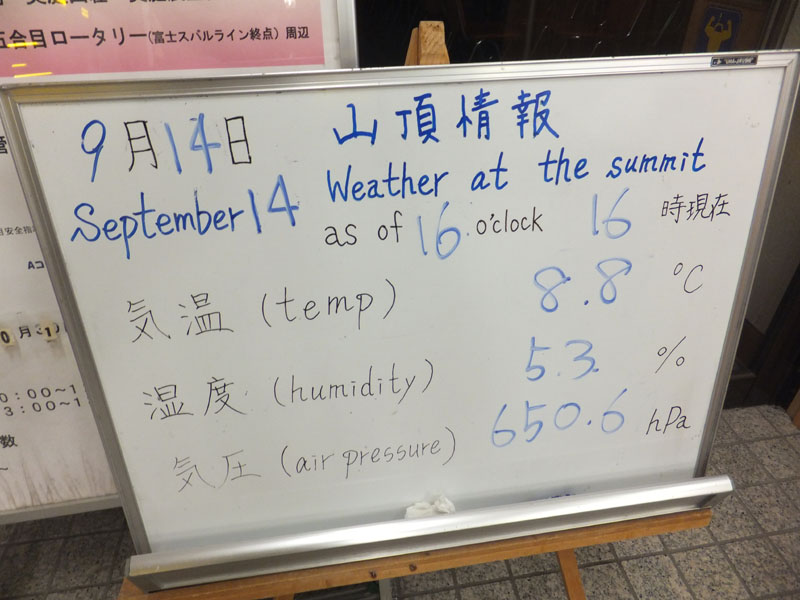 五合目ロータリー(富士スバルライン終点)周辺
9月14日
山頂情報
September 14
Weather at the summit
as of 16 o'clock
16 時現在
気温 (temp) 8.8 ℃
湿度 (humidity) 53 %
気圧 (air pressure) 650.6 hPa